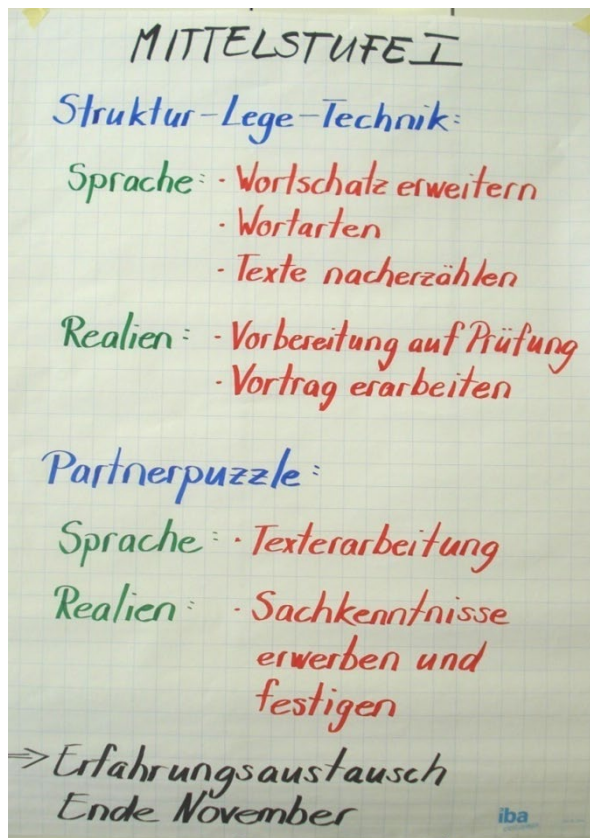 MITTELSTUFE I
Struktur-Lege-Technik:
Sprache: · Wortschatz erweitern
· Wortarten
· Texte nacherzählen
Realien: · Vorbereitung auf Prüfung
· Vortrag erarbeiten
Partnerpuzzle:
Sprache: · Texterarbeitung
Realien: · Sachkenntnisse
erwerben und
festigen
⇒ Erfahrungsaustausch
Ende November
iba